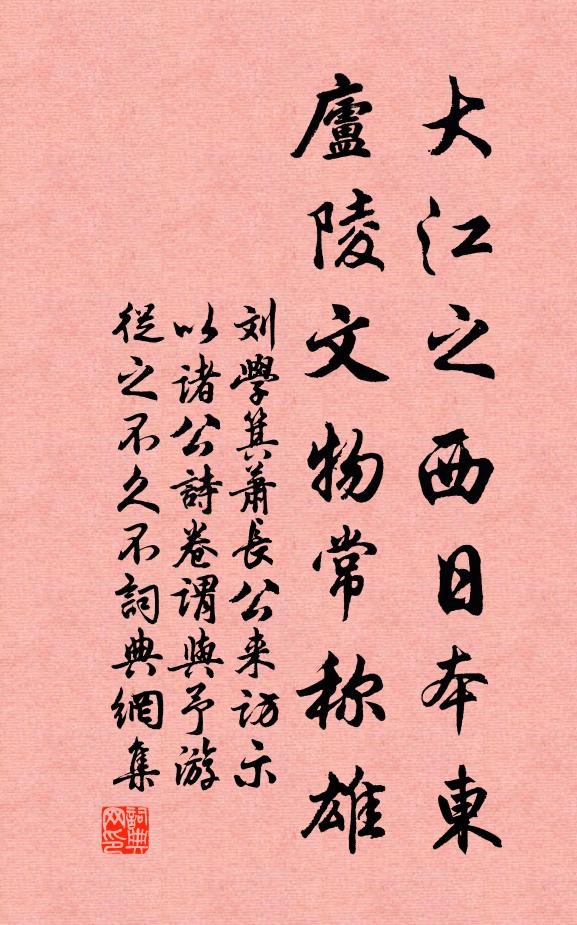 大江之西日本東
廬陵文物常称雄
刘學箕蕭長公来訪示
以诸公詩卷谓與予游
從之不久不詞典網集
詞典网印